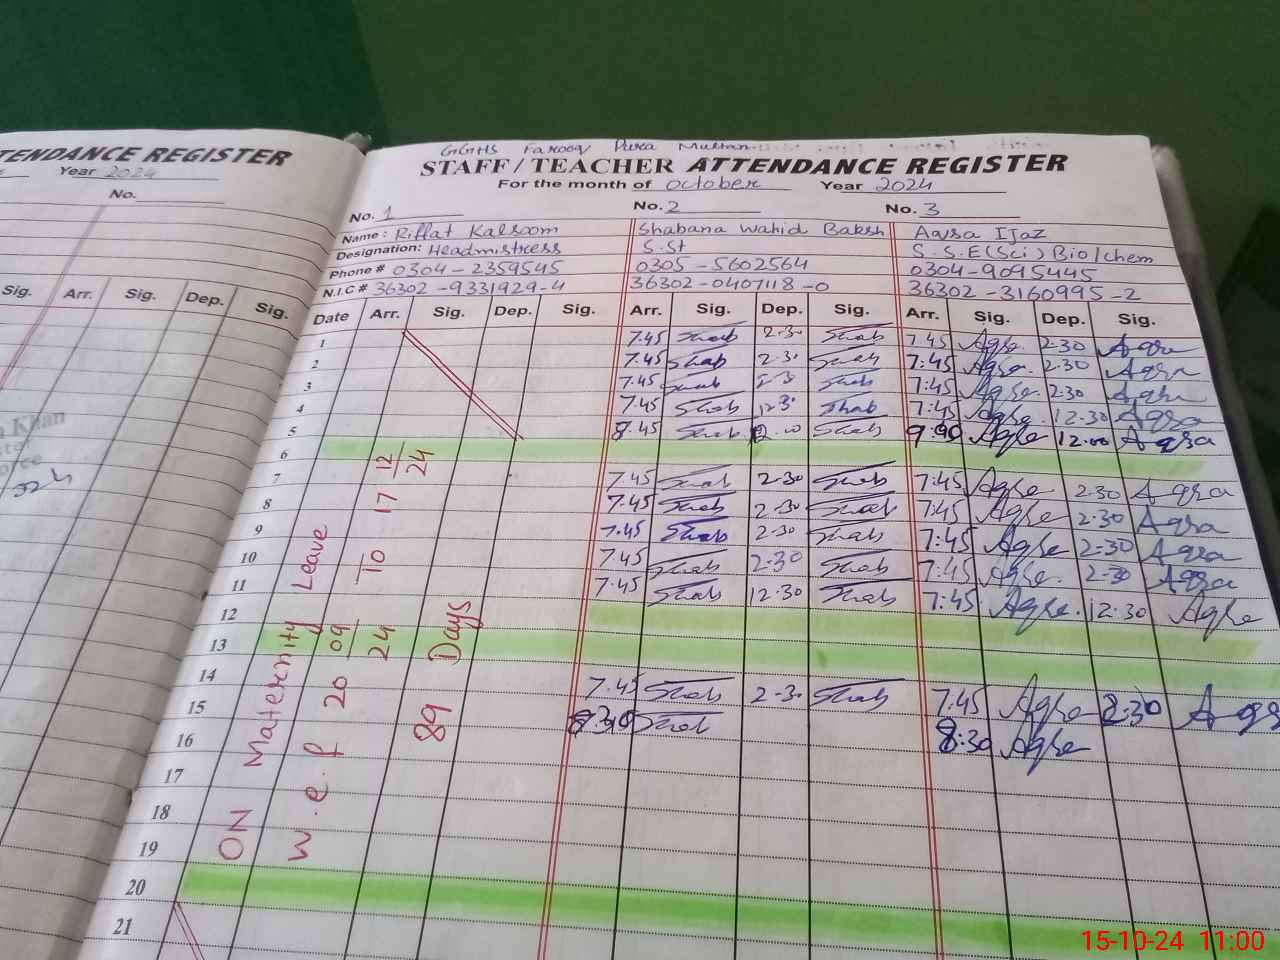 TENDANCE REGISTER
Year 2024
No.
Sig. Arr. Sig. Dep. Sig.
Khan
GGHS Farooq Pura Multan
STAFF / TEACHER ATTENDANCE REGISTER
For the month of October Year 2024
No. 1 No. 2 No. 3
Name: Riffat Kalsoom Shabana Wahid Baksh Aqsa Ijaz
Designation: Headmistress S.St S.S.E(Sci) Bio/chem
Phone # 0304-2359545 0305-5602564 0304-9095445
N.I.C # 36302-9331929-4 36302-0407118-0 36302-3160995-2
Date Arr. Sig. Dep. Sig. Arr. Sig. Dep. Sig. Arr. Sig. Dep. Sig.
1 7.45 Shab 2.30 Shab 7.45 Aqsa 2.30 Aqsa
2 7.45 Shab 2.3 Shab 7:45 Aqsa 2.30 Aqsa
3 7.45 Shab Shab 7:45 Aqsa 2.30 Aqsa
4 7.45 Shab 12.3 Shab 7:45 Aqsa 12.30 Aqsa
5 8.45 Shab Shab Aqsa 12.00 Aqsa
6
7 7.45 Shab 2.30 Shab 7:45 Aqsa 2.30 Aqsa
8 7.45 Shab 2.30 Shab 7:45 Aqsa 2:30 Aqsa
9 7.45 Shab 2.30 Shab 7:45 Aqsa 2:30 Aqsa
10 7.45 Shab 2.30 Shab 7:45 Aqsa 2:30 Aqsa
11 7.45 Shab 12.30 Shab 7:45 Aqsa 12.30 Aqsa
12
13
14 7.45 Shab 2.30 Shab 7.45 Aqsa 2:30 Aqsa
15 8:30 Shab 8:30 Aqsa
16
17
18
19
20
21
ON Maternity Leave
w.e.f 20 09/24 To 17 12/24
89 Days
15-10-24 11:00